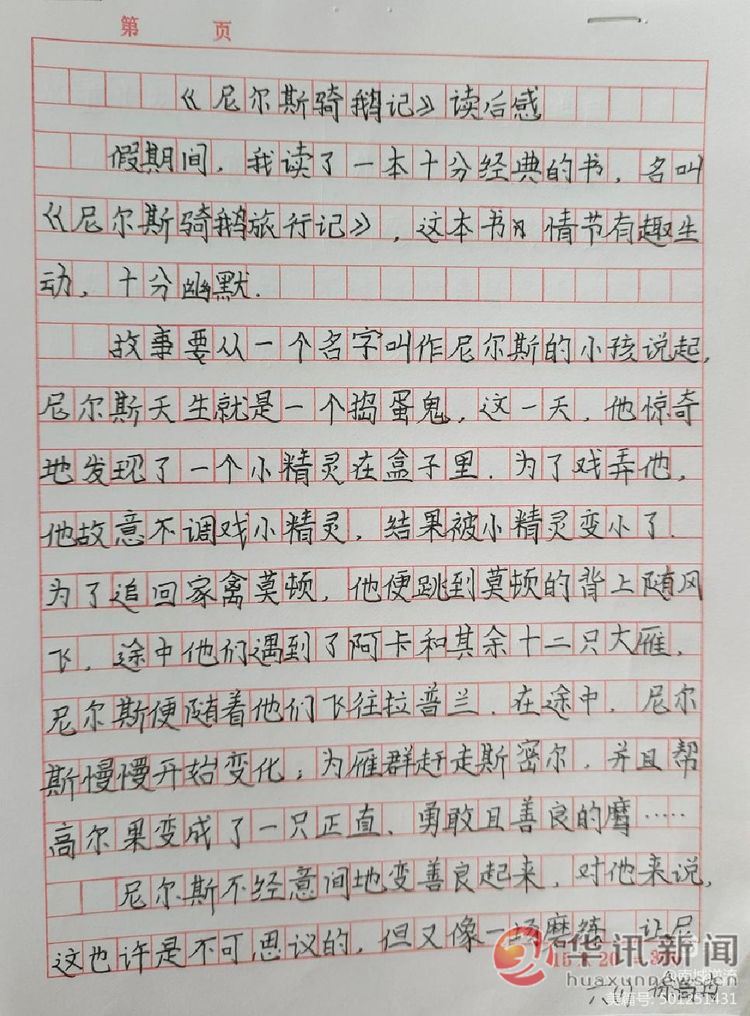 第 页
《尼尔斯骑鹅记》读后感
假期间，我读了一本十分经典的书，名叫
《尼尔斯骑鹅旅行记》，这本书 情节有趣生
动，十分幽默.
故事要从一个名字叫作尼尔斯的小孩说起，
尼尔斯天生就是一个捣蛋鬼，这一天，他惊奇
地发现了一个小精灵在盒子里.为了戏弄他，
他故意不调戏小精灵，结果被小精灵变小了.
为了追回家禽莫顿，他便跳到莫顿的背上随风
飞，途中他们遇到了阿卡和其余十二只大雁，
尼尔斯便随着他们飞往拉普兰.在途中，尼尔
斯慢慢开始变化；为雁群赶走斯密尔，并且帮
高尔果变成了一只正直、勇敢且善良的鹰……
尼尔斯不经意间地变善良起来，对他来说，
这也许是不可思议的，但又像一场磨练，让尼
华讯新闻
huaxunnews.cn
@南城逆流
美篇号：501251431